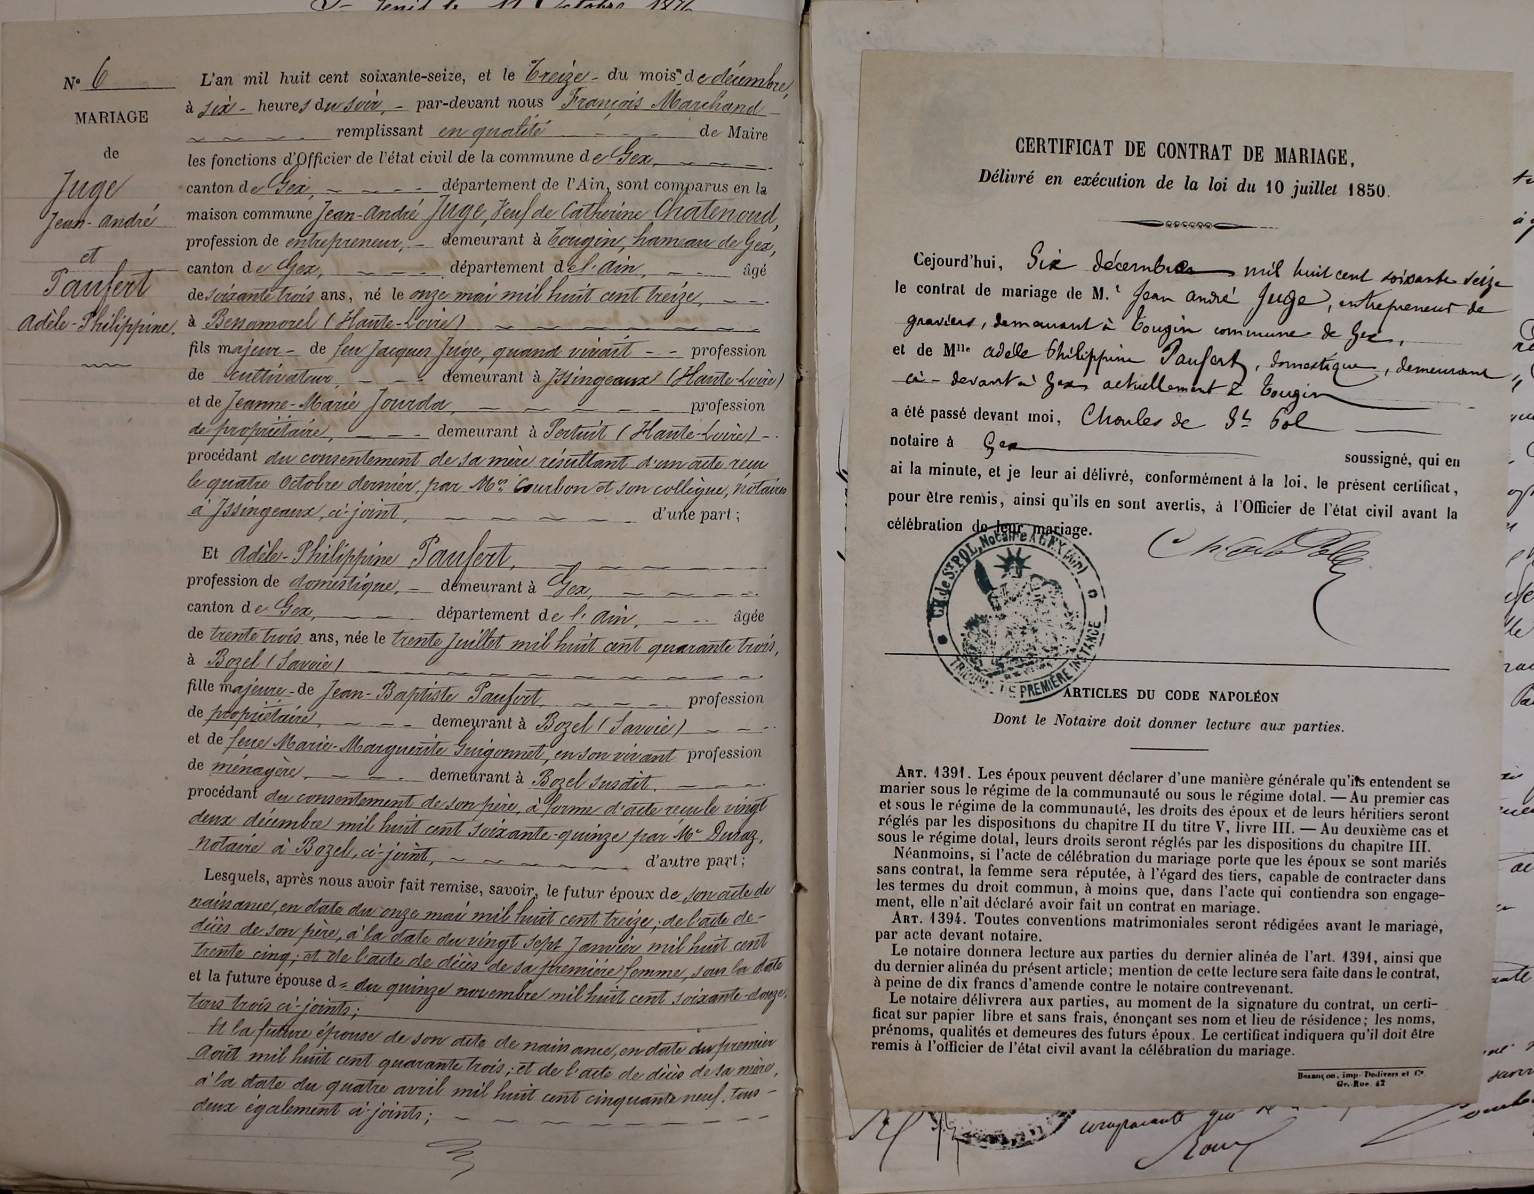 N° 6
MARIAGE
de
Juge
Jean-André
et
Paufert
Adèle-Philippine.
L'an mil huit cent soixante-seize, et le Treize - du mois de décembre,
à six - heures du soir, - par-devant nous François Marchand -
remplissant en qualité de Maire
les fonctions d'Officier de l'état civil de la commune de Gex,
canton de Gex, département de l'Ain, sont comparus en la
maison commune Jean-André Juge, Veuf de Catherine Chatenoud,
profession de entrepreneur, - demeurant à Tougin, hameau de Gex,
canton de Gex, département de l'Ain, âgé
de soixante trois ans, né le onze mai mil huit cent treize,
à Bessamorel (Haute-Loire)
fils majeur - de feu Jacques Juge, quand vivait - - profession
de cultivateur, demeurant à Issingeaux (Haute-Loire)
et de Jeanne-Marie Jourda, profession
de propriétaire, demeurant à Pertuit (Haute-Loire) -
procédant du consentement de sa mère résultant d'un acte reçu
le quatre Octobre dernier, par Mes Courbon et son collègue, notaires
à Issingeaux, ci-joint, d'une part ;
Et Adèle-Philippine Paufert,
profession de domestique, - demeurant à Gex,
canton de Gex, département de l'Ain, âgée
de trente trois ans, née le trente Juillet mil huit cent quarante trois,
à Bozel (Savoie)
fille majeure - de Jean-Baptiste Paufert, profession
de propriétaire, demeurant à Bozel (Savoie)
et de feue Marie-Marguerite Guigonnet, en son vivant profession
de ménagère, demeurant à Bozel susdit.
procédant du consentement de son père, à forme d'acte reçu le vingt
deux décembre mil huit cent soixante-quinze par Me Duraz,
notaire à Bozel, ci-joint, d'autre part ;
Lesquels, après nous avoir fait remise, savoir, le futur époux de son acte de
naissance, en date du onze mai mil huit cent treize ; de l'acte de-
décès de son père, à la date du vingt sept Janvier mil huit cent
trente cinq ; et de l'acte de décès de sa première femme, sous la date
et la future épouse d= du quinze novembre mil huit cent soixante-douze,
tous trois ci-joints ;
Et la future épouse de son acte de naissance, en date du premier
Août mil huit cent quarante trois ; et de l'acte de décès de sa mère,
à la date du quatre avril mil huit cent cinquante neuf, tous -
deux également ci-joints ;
CERTIFICAT DE CONTRAT DE MARIAGE,
Délivré en exécution de la loi du 10 juillet 1850.
Cejourd'hui, Six décembre mil huit cent soixante seize
le contrat de mariage de M.r Jean André Juge, entrepreneur de
graviers, demeurant à Tougin commune de Gex,
et de Mlle Adèle Philippine Paufert, domestique, demeurant
ci-devant à Gex actuellement à Tougin
a été passé devant moi, Charles de St Pol
notaire à Gex soussigné, qui en
ai la minute, et je leur ai délivré, conformément à la loi, le présent certificat,
pour être remis, ainsi qu'ils en sont avertis, à l'Officier de l'état civil avant la
célébration de leur mariage.
CH. de St POL, Notaire A GEX (Ain)
TRIBUNAL DE PREMIÈRE INSTANCE
ARTICLES DU CODE NAPOLÉON
Dont le Notaire doit donner lecture aux parties.
ART. 1391. Les époux peuvent déclarer d'une manière générale qu'ils entendent se
marier sous le régime de la communauté ou sous le régime dotal. — Au premier cas
et sous le régime de la communauté, les droits des époux et de leurs héritiers seront
réglés par les dispositions du chapitre II du titre V, livre III. — Au deuxième cas et
sous le régime dotal, leurs droits seront réglés par les dispositions du chapitre III.
Néanmoins, si l'acte de célébration du mariage porte que les époux se sont mariés
sans contrat, la femme sera réputée, à l'égard des tiers, capable de contracter dans
les termes du droit commun, à moins que, dans l'acte qui contiendra son engage-
ment, elle n'ait déclaré avoir fait un contrat en mariage.
ART. 1394. Toutes conventions matrimoniales seront rédigées avant le mariage,
par acte devant notaire.
Le notaire donnera lecture aux parties du dernier alinéa de l'art. 1391, ainsi que
du dernier alinéa du présent article ; mention de cette lecture sera faite dans le contrat,
à peine de dix francs d'amende contre le notaire contrevenant.
Le notaire délivrera aux parties, au moment de la signature du contrat, un certi-
ficat sur papier libre et sans frais, énonçant ses nom et lieu de résidence ; les noms,
prénoms, qualités et demeures des futurs époux. Le certificat indiquera qu'il doit être
remis à l'officier de l'état civil avant la célébration du mariage.
Besançon, imp. Dodivers et Ce,
Gr.-Rue, 42